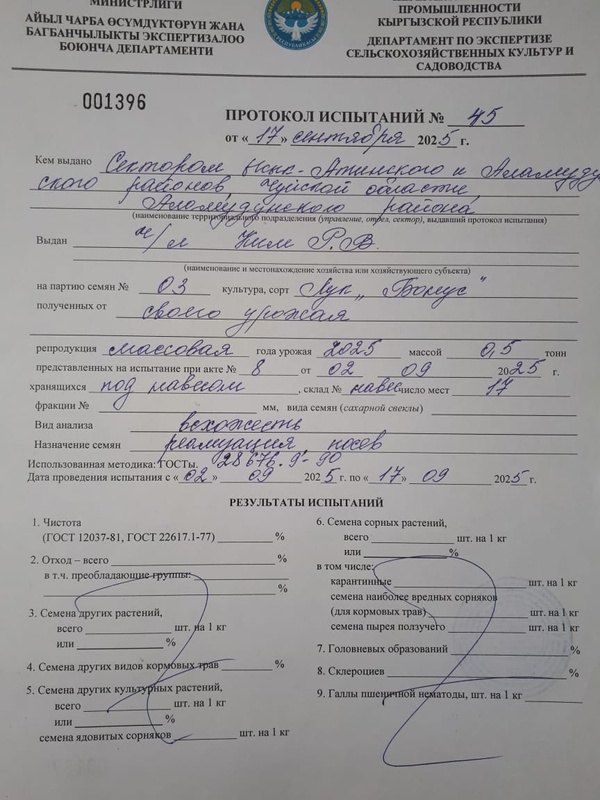 МИНИСТРЛИГИ
АЙЫЛ ЧАРБА ӨСҮМДҮКТӨРҮН ЖАНА
БАГБАНЧЫЛЫКТЫ ЭКСПЕРТИЗАЛОО
БОЮНЧА ДЕПАРТАМЕНТИ
ПРОМЫШЛЕННОСТИ
КЫРГЫЗСКОЙ РЕСПУБЛИКИ
ДЕПАРТАМЕНТ ПО ЭКСПЕРТИЗЕ
СЕЛЬСКОХОЗЯЙСТВЕННЫХ КУЛЬТУР И
САДОВОДСТВА
001396
ПРОТОКОЛ ИСПЫТАНИЙ № 45
от «17» сентября 2025 г.
Кем выдано Сектором Ыссык-Атинского и Аламуду
ского районов, Чуйской области,
Аламудунского района
(наименование территориального подразделения (управление, отдел, сектор), выдавший протокол испытания)
Выдан ч/л Ким Р.В.
(наименование и местонахождение хозяйства или хозяйствующего субъекта)
на партию семян № 03 культура, сорт Лук „Бонус"
полученных от своего урожая
репродукция массовая года урожая 2025 массой 0,5 тонн
представленных на испытание при акте № 8 от 02 09 2025 г.
хранящихся под навесом, склад № навес число мест 17
фракции № мм, вида семян (сахарной свеклы)
Вид анализа всхожесть
Назначение семян реализация, посев
Использованная методика: ГОСТы: 28676.9-90
Дата проведения испытания с «02» 09 2025 г. по «17» 09 2025 г.
РЕЗУЛЬТАТЫ ИСПЫТАНИЙ
1. Чистота
(ГОСТ 12037-81, ГОСТ 22617.1-77) %
2. Отход – всего %
в т.ч. преобладающие группы:
%
3. Семена других растений,
всего шт. на 1 кг
или %
4. Семена других видов кормовых трав %
5. Семена других культурных растений,
всего шт. на 1 кг
или %
семена ядовитых сорняков шт. на 1 кг
6. Семена сорных растений,
всего шт. на 1 кг
или %
в том числе:
карантинные шт. на 1 кг
семена наиболее вредных сорняков
(для кормовых трав) шт. на 1 кг
семена пырея ползучего шт. на 1 кг
7. Головневых образований %
8. Склероциев %
9. Галлы пшеничной нематоды, шт. на 1 кг